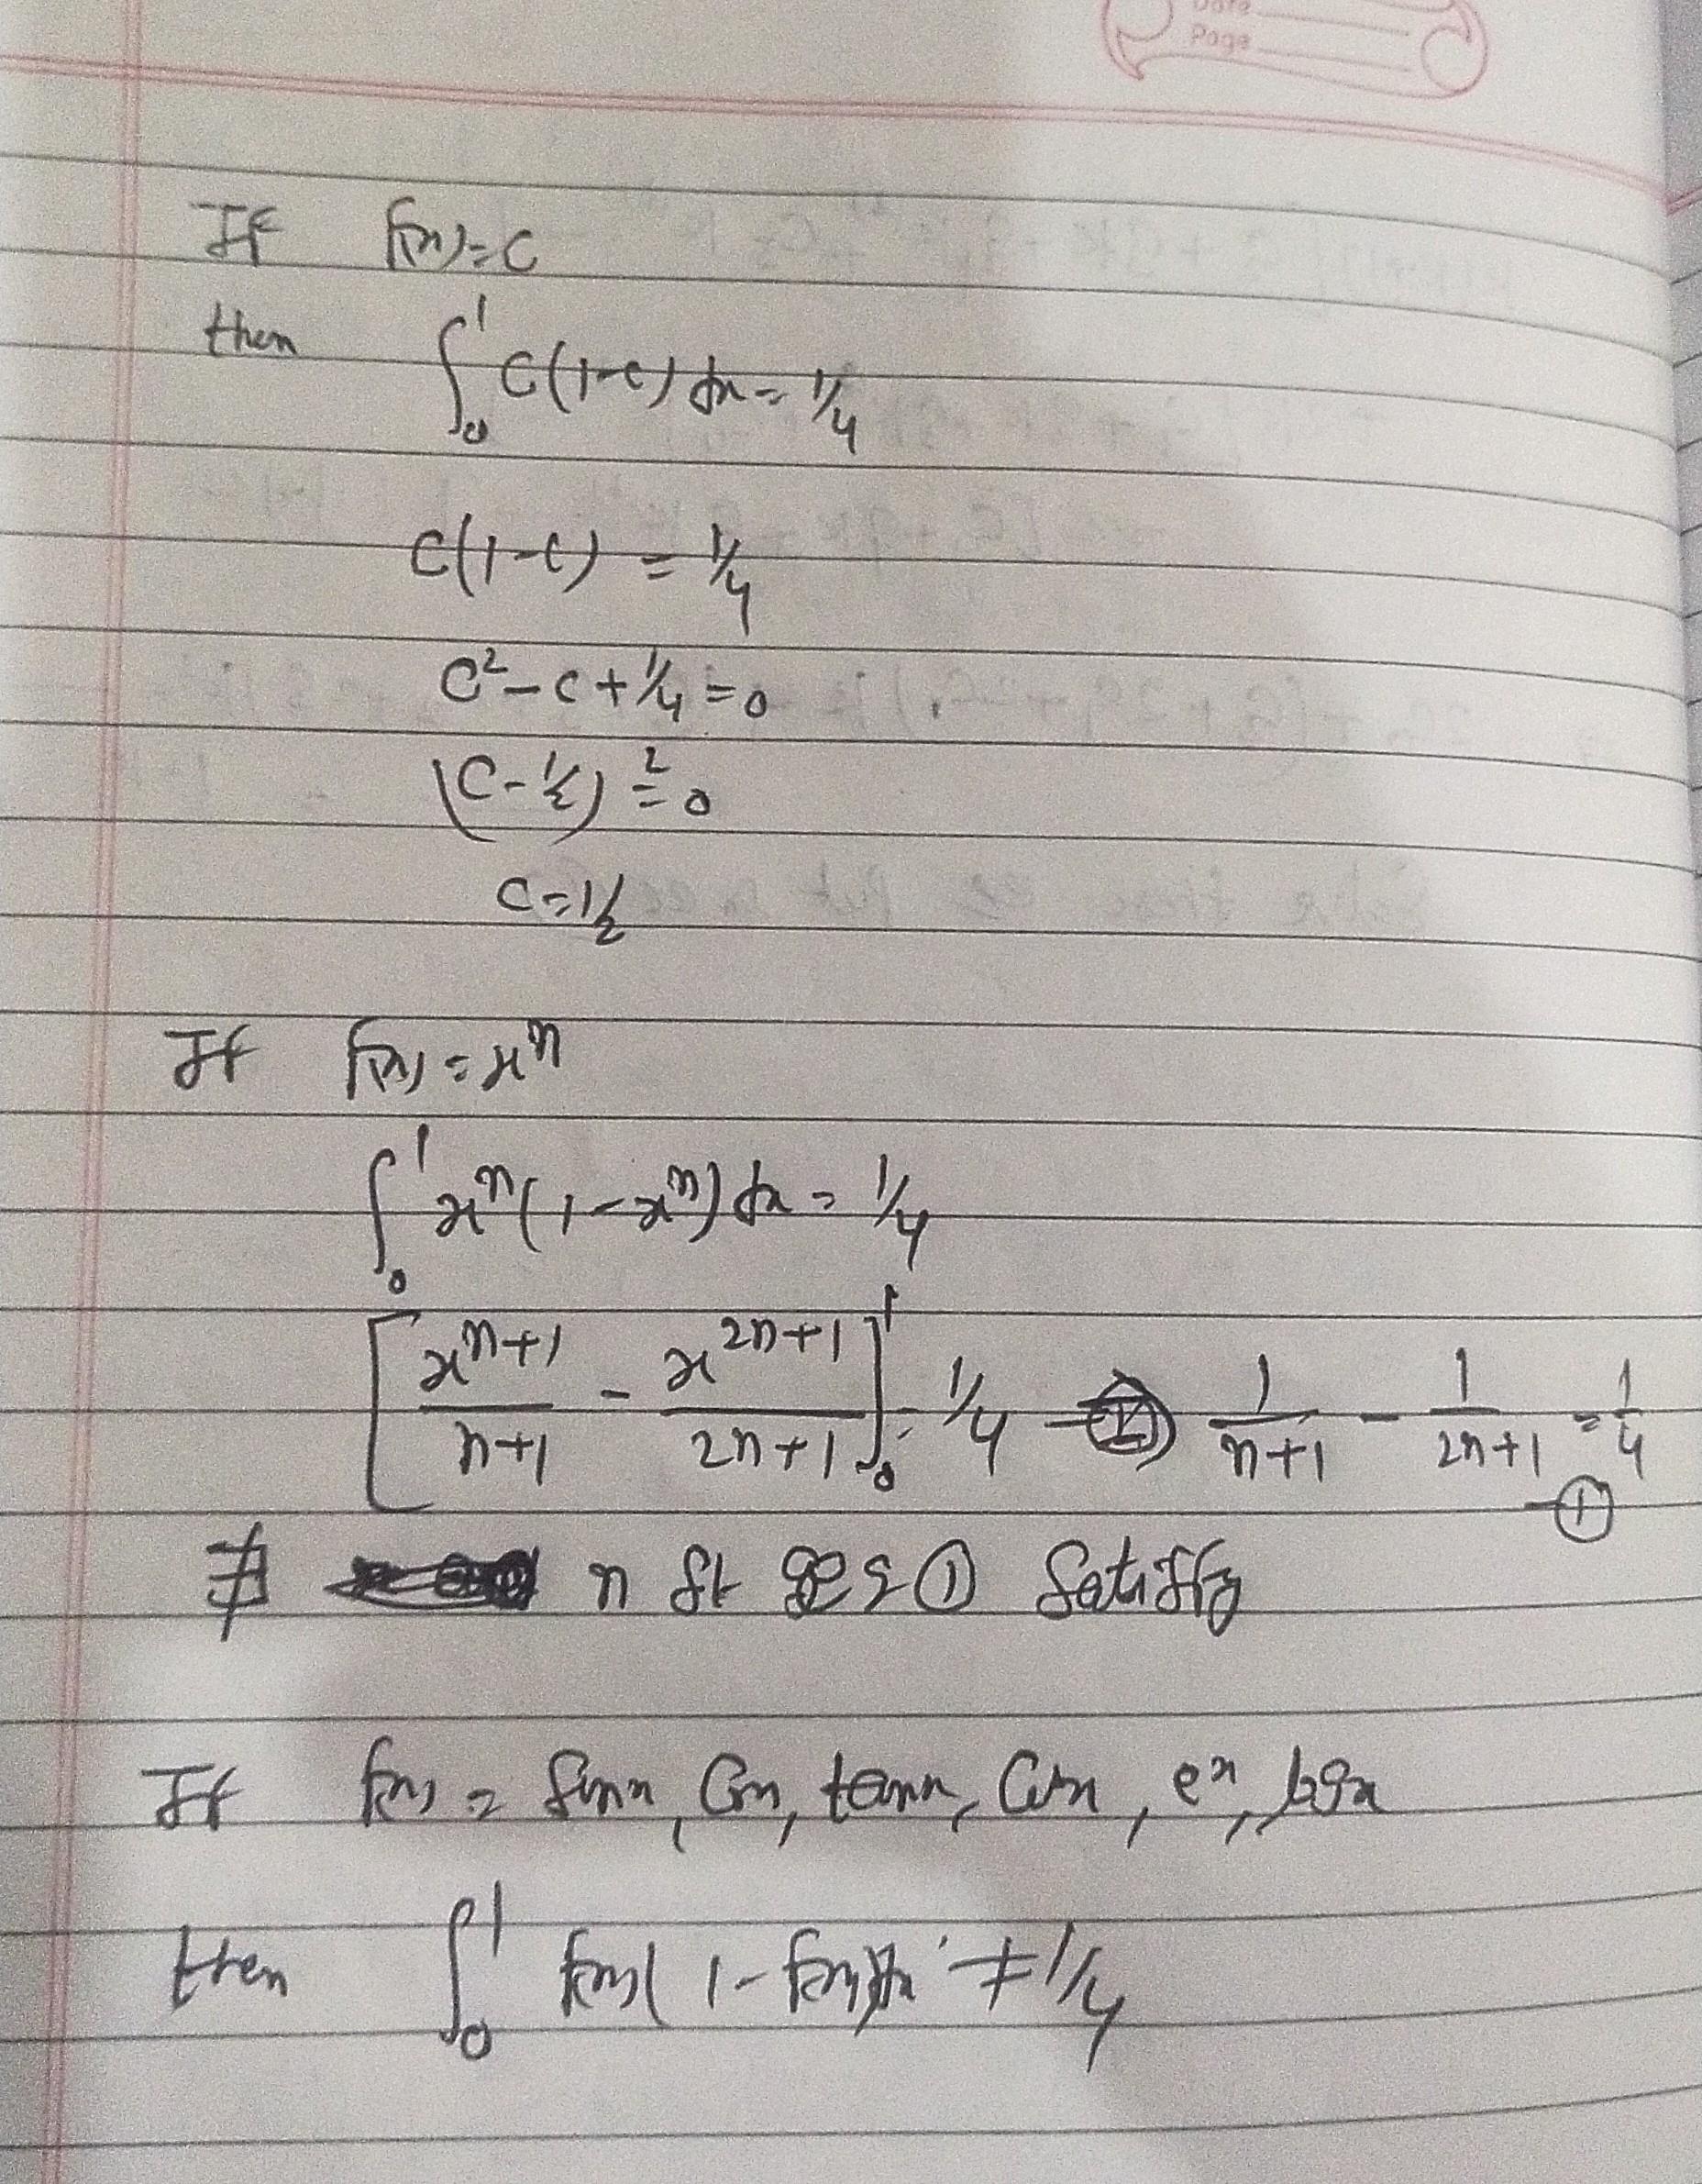 Date
Page
If f(x)=C
then ∫₀¹ C(1-C) dx = 1/4
C(1-C) = 1/4
C² - C + 1/4 = 0
(C - 1/2)² = 0
C = 1/2
If f(x) = xⁿ
∫₀¹ xⁿ(1 - xⁿ) dx = 1/4
[xⁿ⁺¹/(n+1) - x²ⁿ⁺¹/(2n+1)]₀¹ = 1/4 1/(n+1) - 1/(2n+1) = 1/4 -①
∄ n st ① Satisfy
If f(x) = Sinx, Cosx, tanx, Cotx, eˣ, logx
then ∫₀¹ f(x)(1 - f(x))dx ≠ 1/4